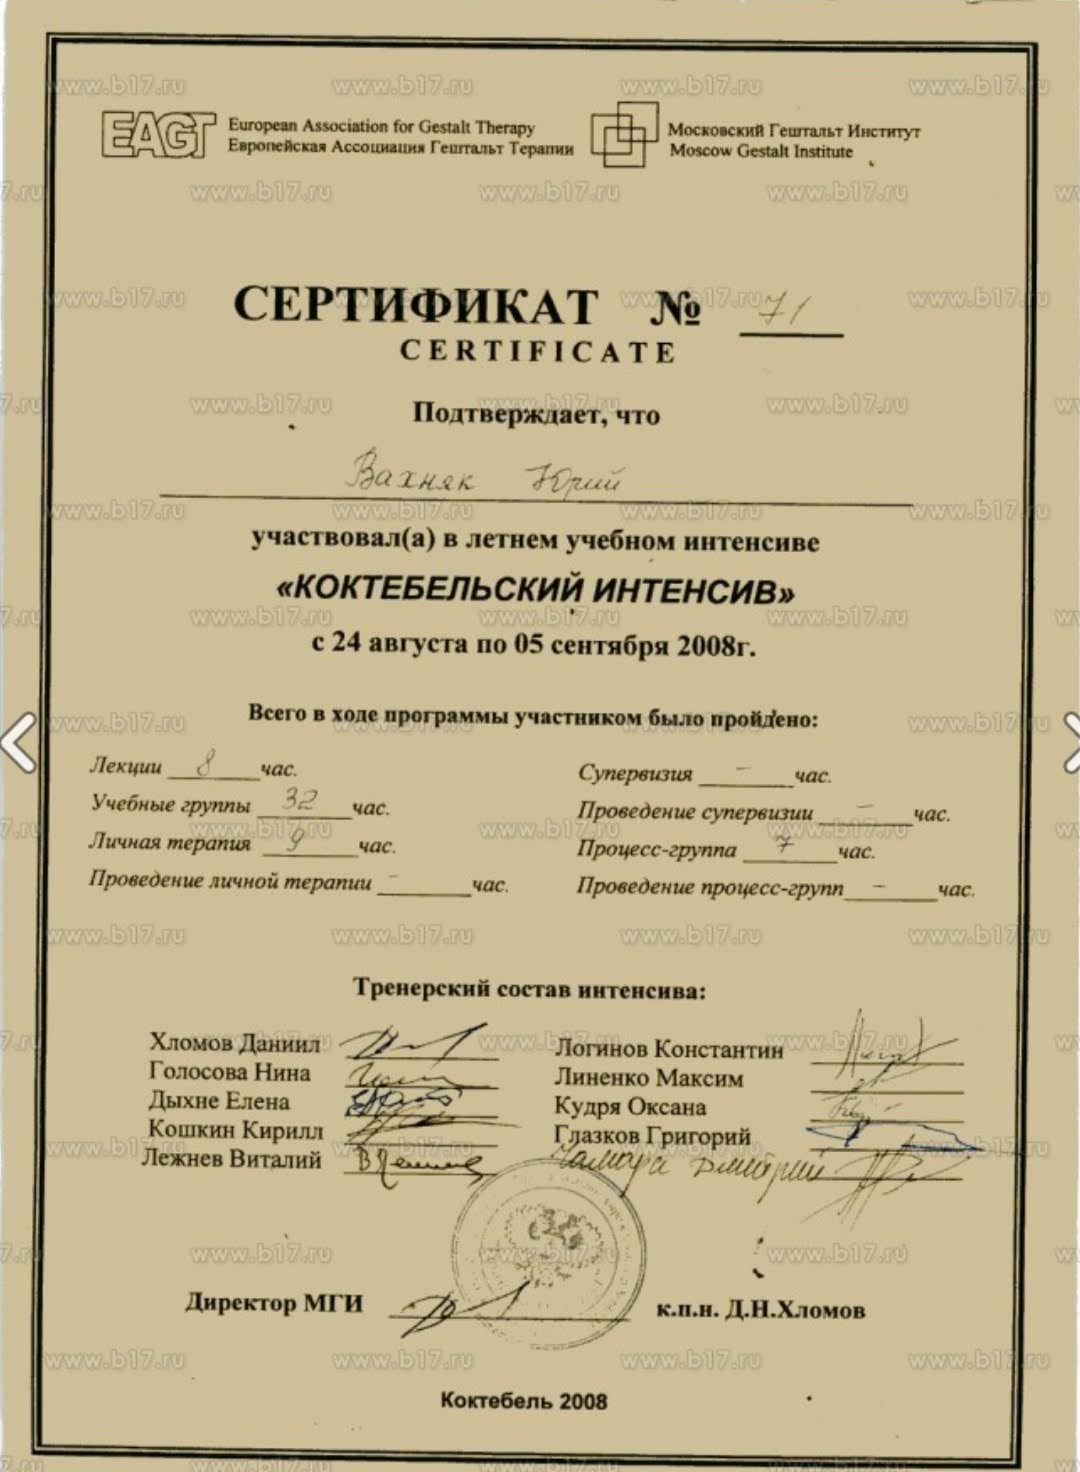 EAGT European Association for Gestalt Therapy
Европейская Ассоциация Гештальт Терапии
Московский Гештальт Институт
Moscow Gestalt Institute
СЕРТИФИКАТ № 71
CERTIFICATE
Подтверждает, что
Вахняк Юрий
участвовал(а) в летнем учебном интенсиве
«КОКТЕБЕЛЬСКИЙ ИНТЕНСИВ»
с 24 августа по 05 сентября 2008г.
Всего в ходе программы участником было пройдено:
Лекции 8 час.
Учебные группы 32 час.
Личная терапия 9 час.
Проведение личной терапии - час.
Супервизия - час.
Проведение супервизии - час.
Процесс-группа 7 час.
Проведение процесс-групп - час.
Тренерский состав интенсива:
Хломов Даниил
Голосова Нина
Дыхне Елена
Кошкин Кирилл
Лежнев Виталий
Логинов Константин
Линенко Максим
Кудря Оксана
Глазков Григорий
Дмитрий
Директор МГИ
к.п.н. Д.Н.Хломов
Коктебель 2008
www.b17.ru